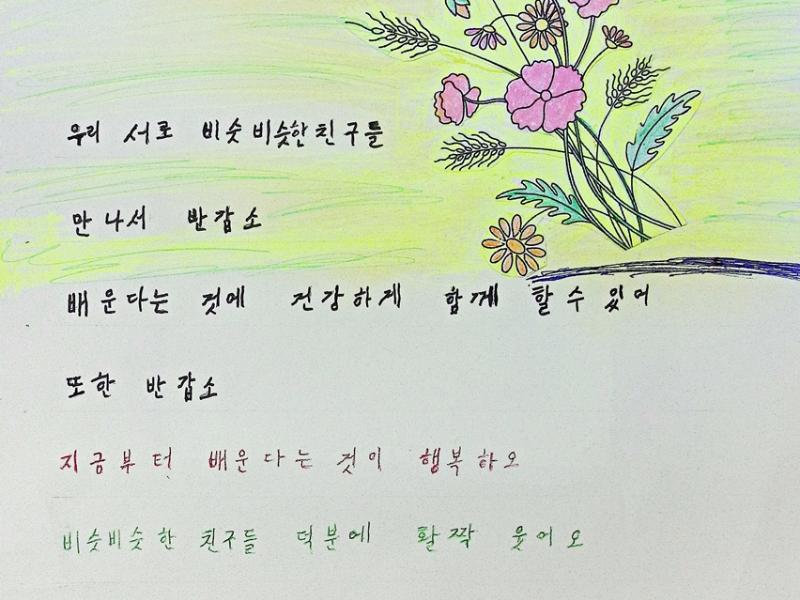 우리 서로 비슷비슷한 친구들
만나서 반갑소
배운다는 것에 건강하게 함께 할 수 있어
또한 반갑소
지금부터 배운다는 것이 행복하오
비슷비슷한 친구들 덕분에 활짝 웃어오